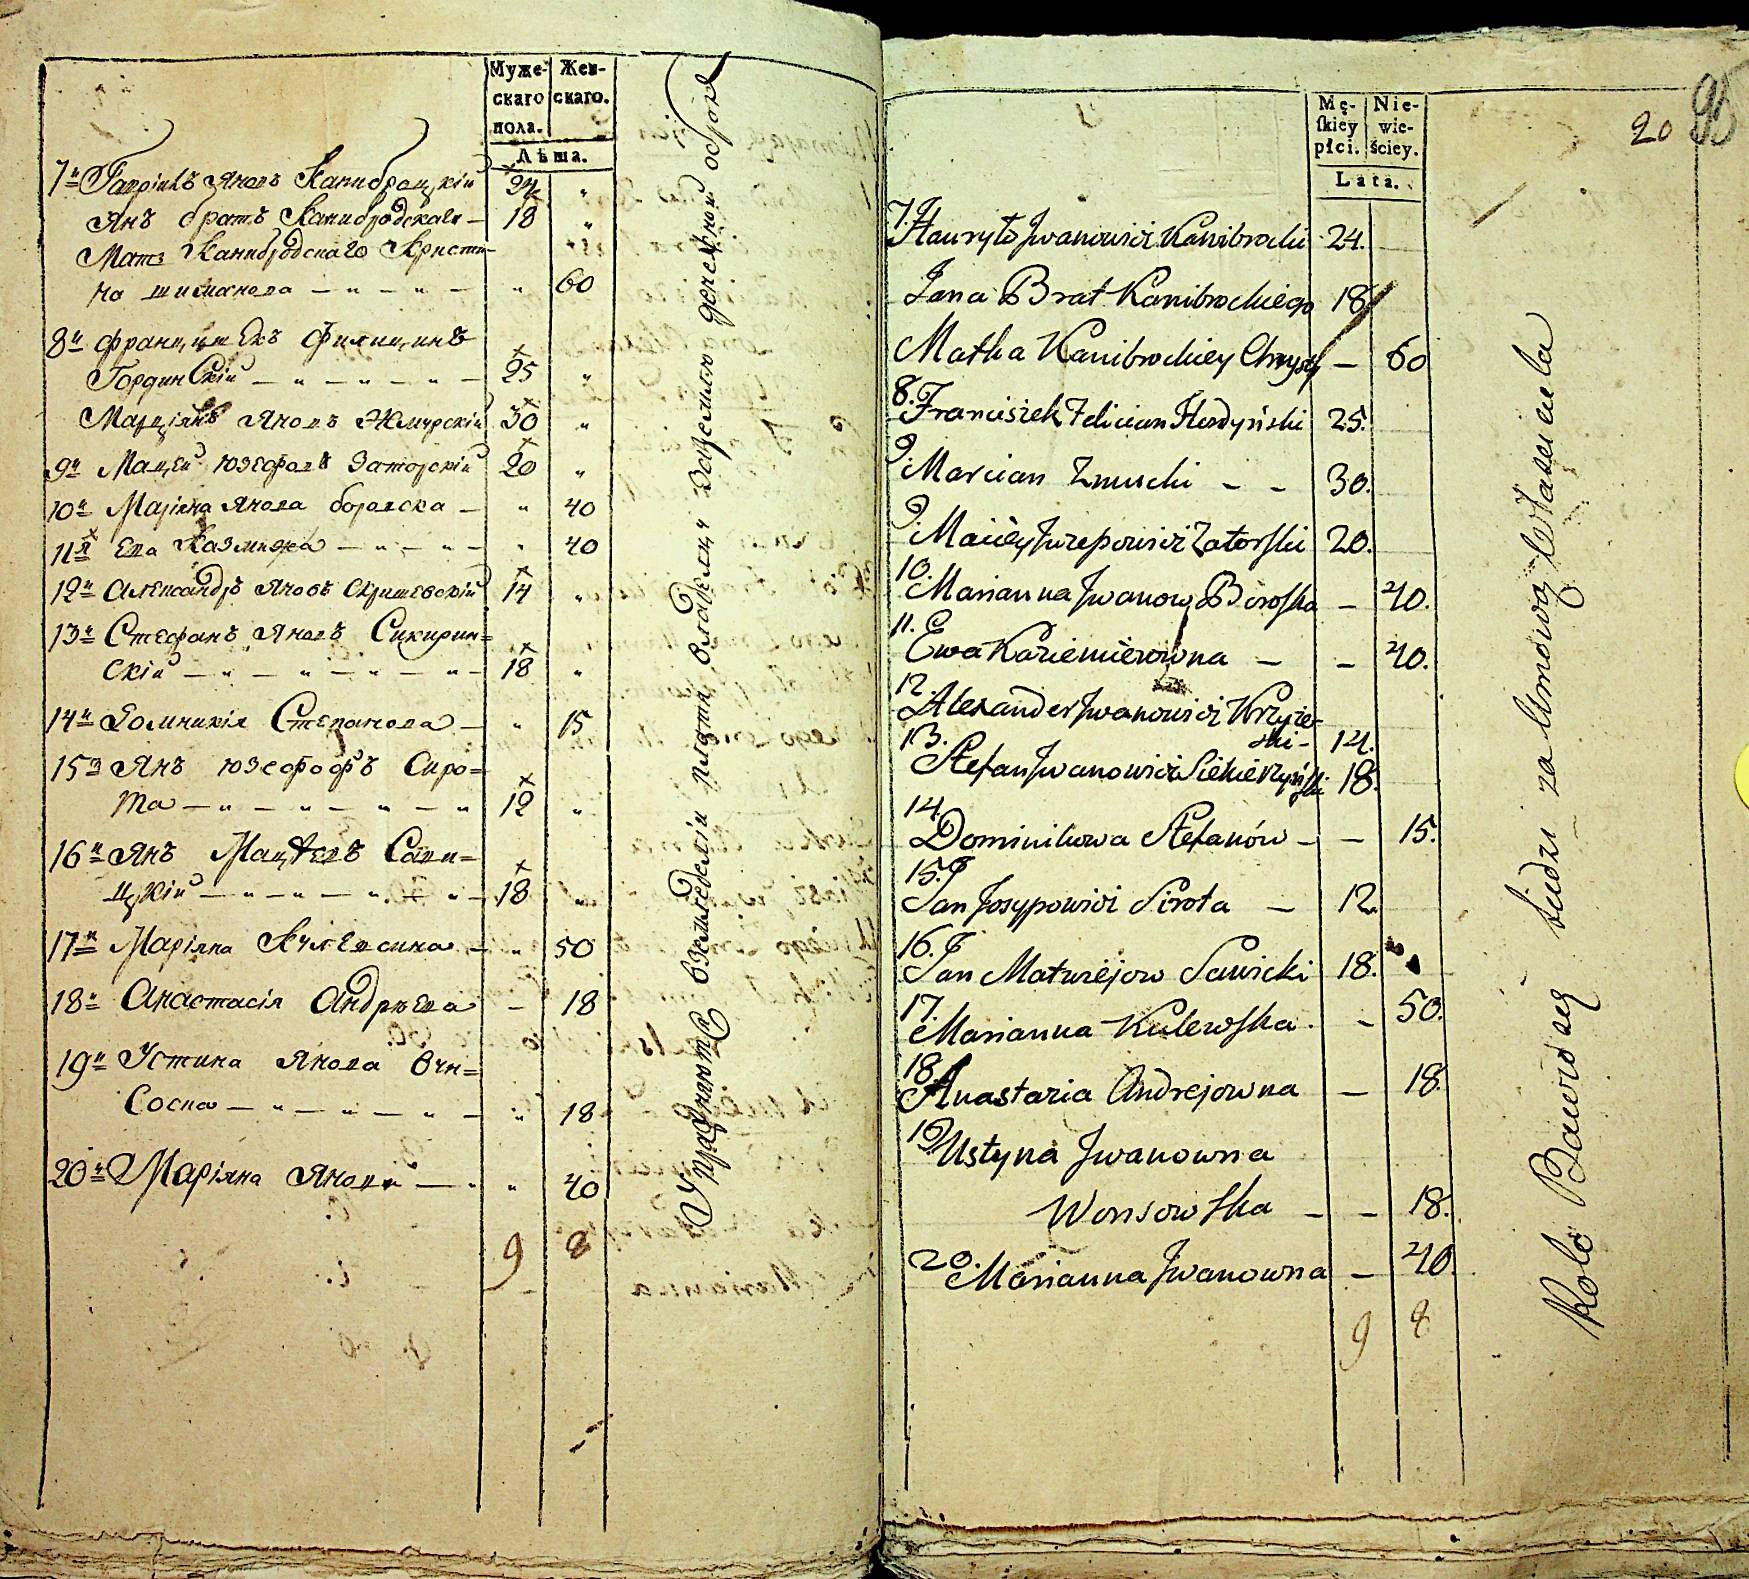 Муже- Жен-
скаго скаго.
пола.
Лѣта.
7й Гаврiилъ Яновъ Канибродцкiй 24 "
Янъ братъ Канибродскаго — 18 "
Мать Канибродскаго Кристи-
на шиманова — " — " — " 60
8й францишекъ Филицинъ
Гординскiй — " — " — " — 25 "
Марцiянъ Яновъ Жмурскiй 30 "
9й Мацей Юзефовъ Заторскiй 20 "
10й Марiяна Янова боровска — " 40
11я Ева Казимира — " — " — " 40
12й Александръ Яновъ Скришевскiй 14 "
13й Стефанъ Яновъ Сикирин=
скiй — " — " — " — " — 18 "
14й Доминикiя Степанова — " 15
15й Янъ юзефофъ Сиро=
та — " — " — " — " 12 "
16й Янъ Мацѣевъ Сави=
цкiй — " — " — " — 18 "
17й Марiяна Кулевсика — " 50
18й Анастасiя Андрѣева — 18
19й Устина Янова Вон=
Соска — " — " — " — " 18
20й Марiяна Янова — " " 40
9 8
20
Mę- Nie-
skiey wie-
płci. ściey.
Lata.
7. Hauryło Jwanowicz Kanibrocki 24.
Jana Brat Kanibrockiego 18
Matka Kanibrockiey Chryst — 60
8. Francisiek Felician Hordyński 25.
9. Marcian Zmucki — — 30.
9. Maciey Juzepowicz Zatorski 20.
10. Marianna Jwanow Borofska — 40.
11. Ewa Kaziemierowna — — 40.
12. Alexander Jwanowicz Krzyże-
ski — 14.
13. Stefan Jwanowicz Siekierzyński 18.
14. Dominikowa Stefanów — — 15.
15. Jan Josypowicz Sirota — 12.
16. Jan Matwiejow Sawicki 18.
17. Marianna Kulewska. — 50.
18. Anastazia Andrejowna — 18.
19. Ustyna Jwanowna
Wonsowska — — 18.
20. Marianna Jwanowna — 40.
9 8
Koło Dawidsey ludzi za Umową Własciciela